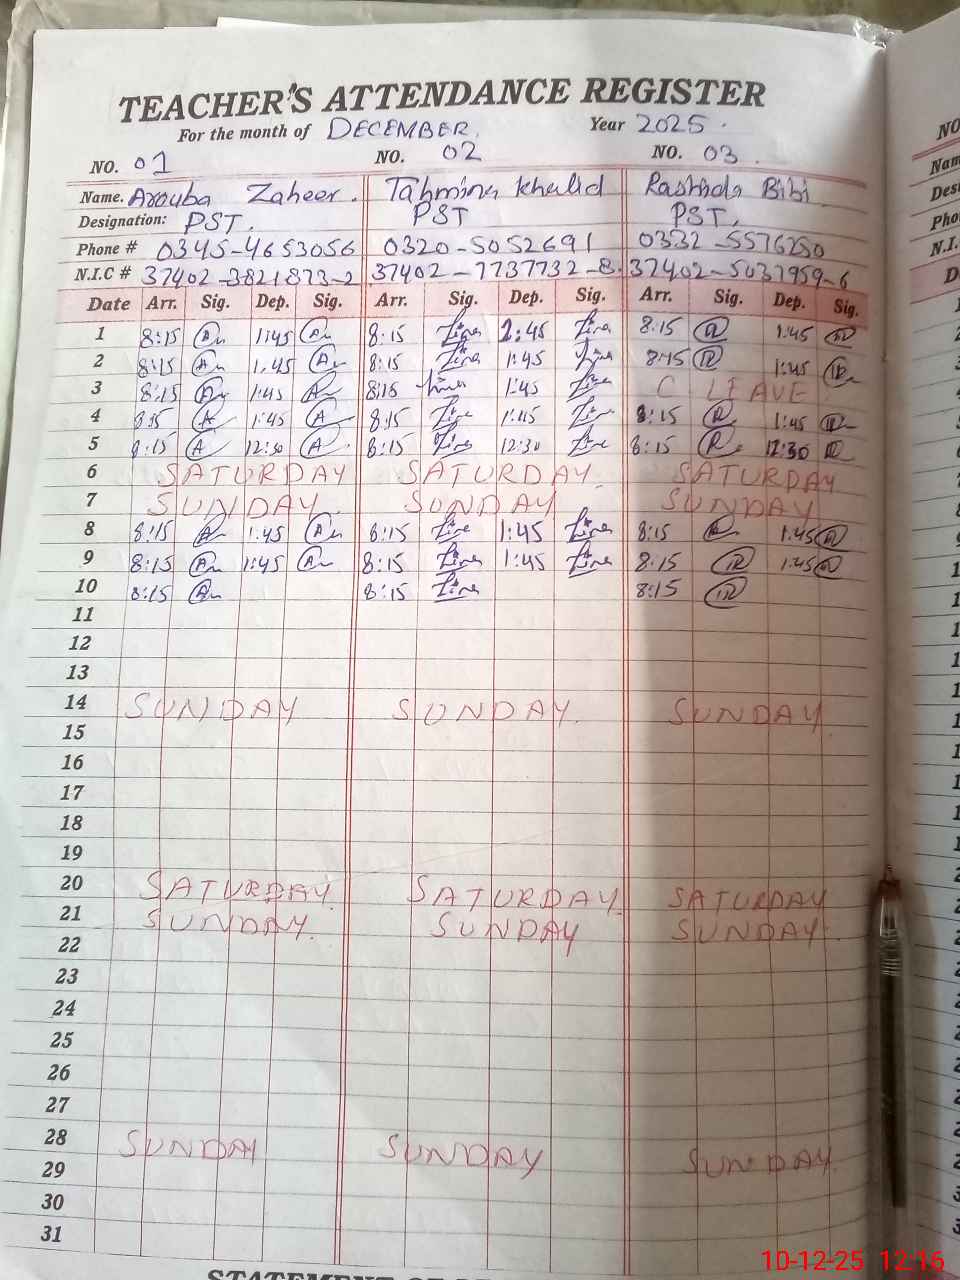 TEACHER'S ATTENDANCE REGISTER
For the month of DECEMBER. Year 2025.
NO. 01 NO. 02 NO. 03.
Name. Arouba Zaheer. Tahmina Khalid Rashida Bibi
Designation: PST. PST PST.
Phone # 0345-4653056 0320-5052691 0332-5576250
N.I.C # 37402-3821873-2 37402-7737732-8. 37402-5037959-6
Date Arr. Sig. Dep. Sig. Arr. Sig. Dep. Sig. Arr. Sig. Dep. Sig.
1 8:15 1:45 8:15 1:45 8:15 1:45
2 8:15 1:45 8:15 1:45 8:15 1:45
3 8:15 1:45 8:15 1:45 C LEAVE
4 8:15 1:45 8:15 1:45 8:15 1:45
5 8:15 12:30 8:15 12:30 8:15 12:30
6 SATURDAY SATURDAY. SATURDAY
7 SUNDAY. SUNDAY SUNDAY
8 8:15 1:45 8:15 1:45 8:15 1:45
9 8:15 1:45 8:15 1:45 8:15 1:45
10 8:15 8:15 8:15
11
12
13
14 SUNDAY SUNDAY. SUNDAY
15
16
17
18
19
20 SATURDAY. SATURDAY. SATURDAY
21 SUNDAY. SUNDAY SUNDAY.
22
23
24
25
26
27
28 SUNDAY SUNDAY SUNDAY.
29
30
31
10-12-25 12:16